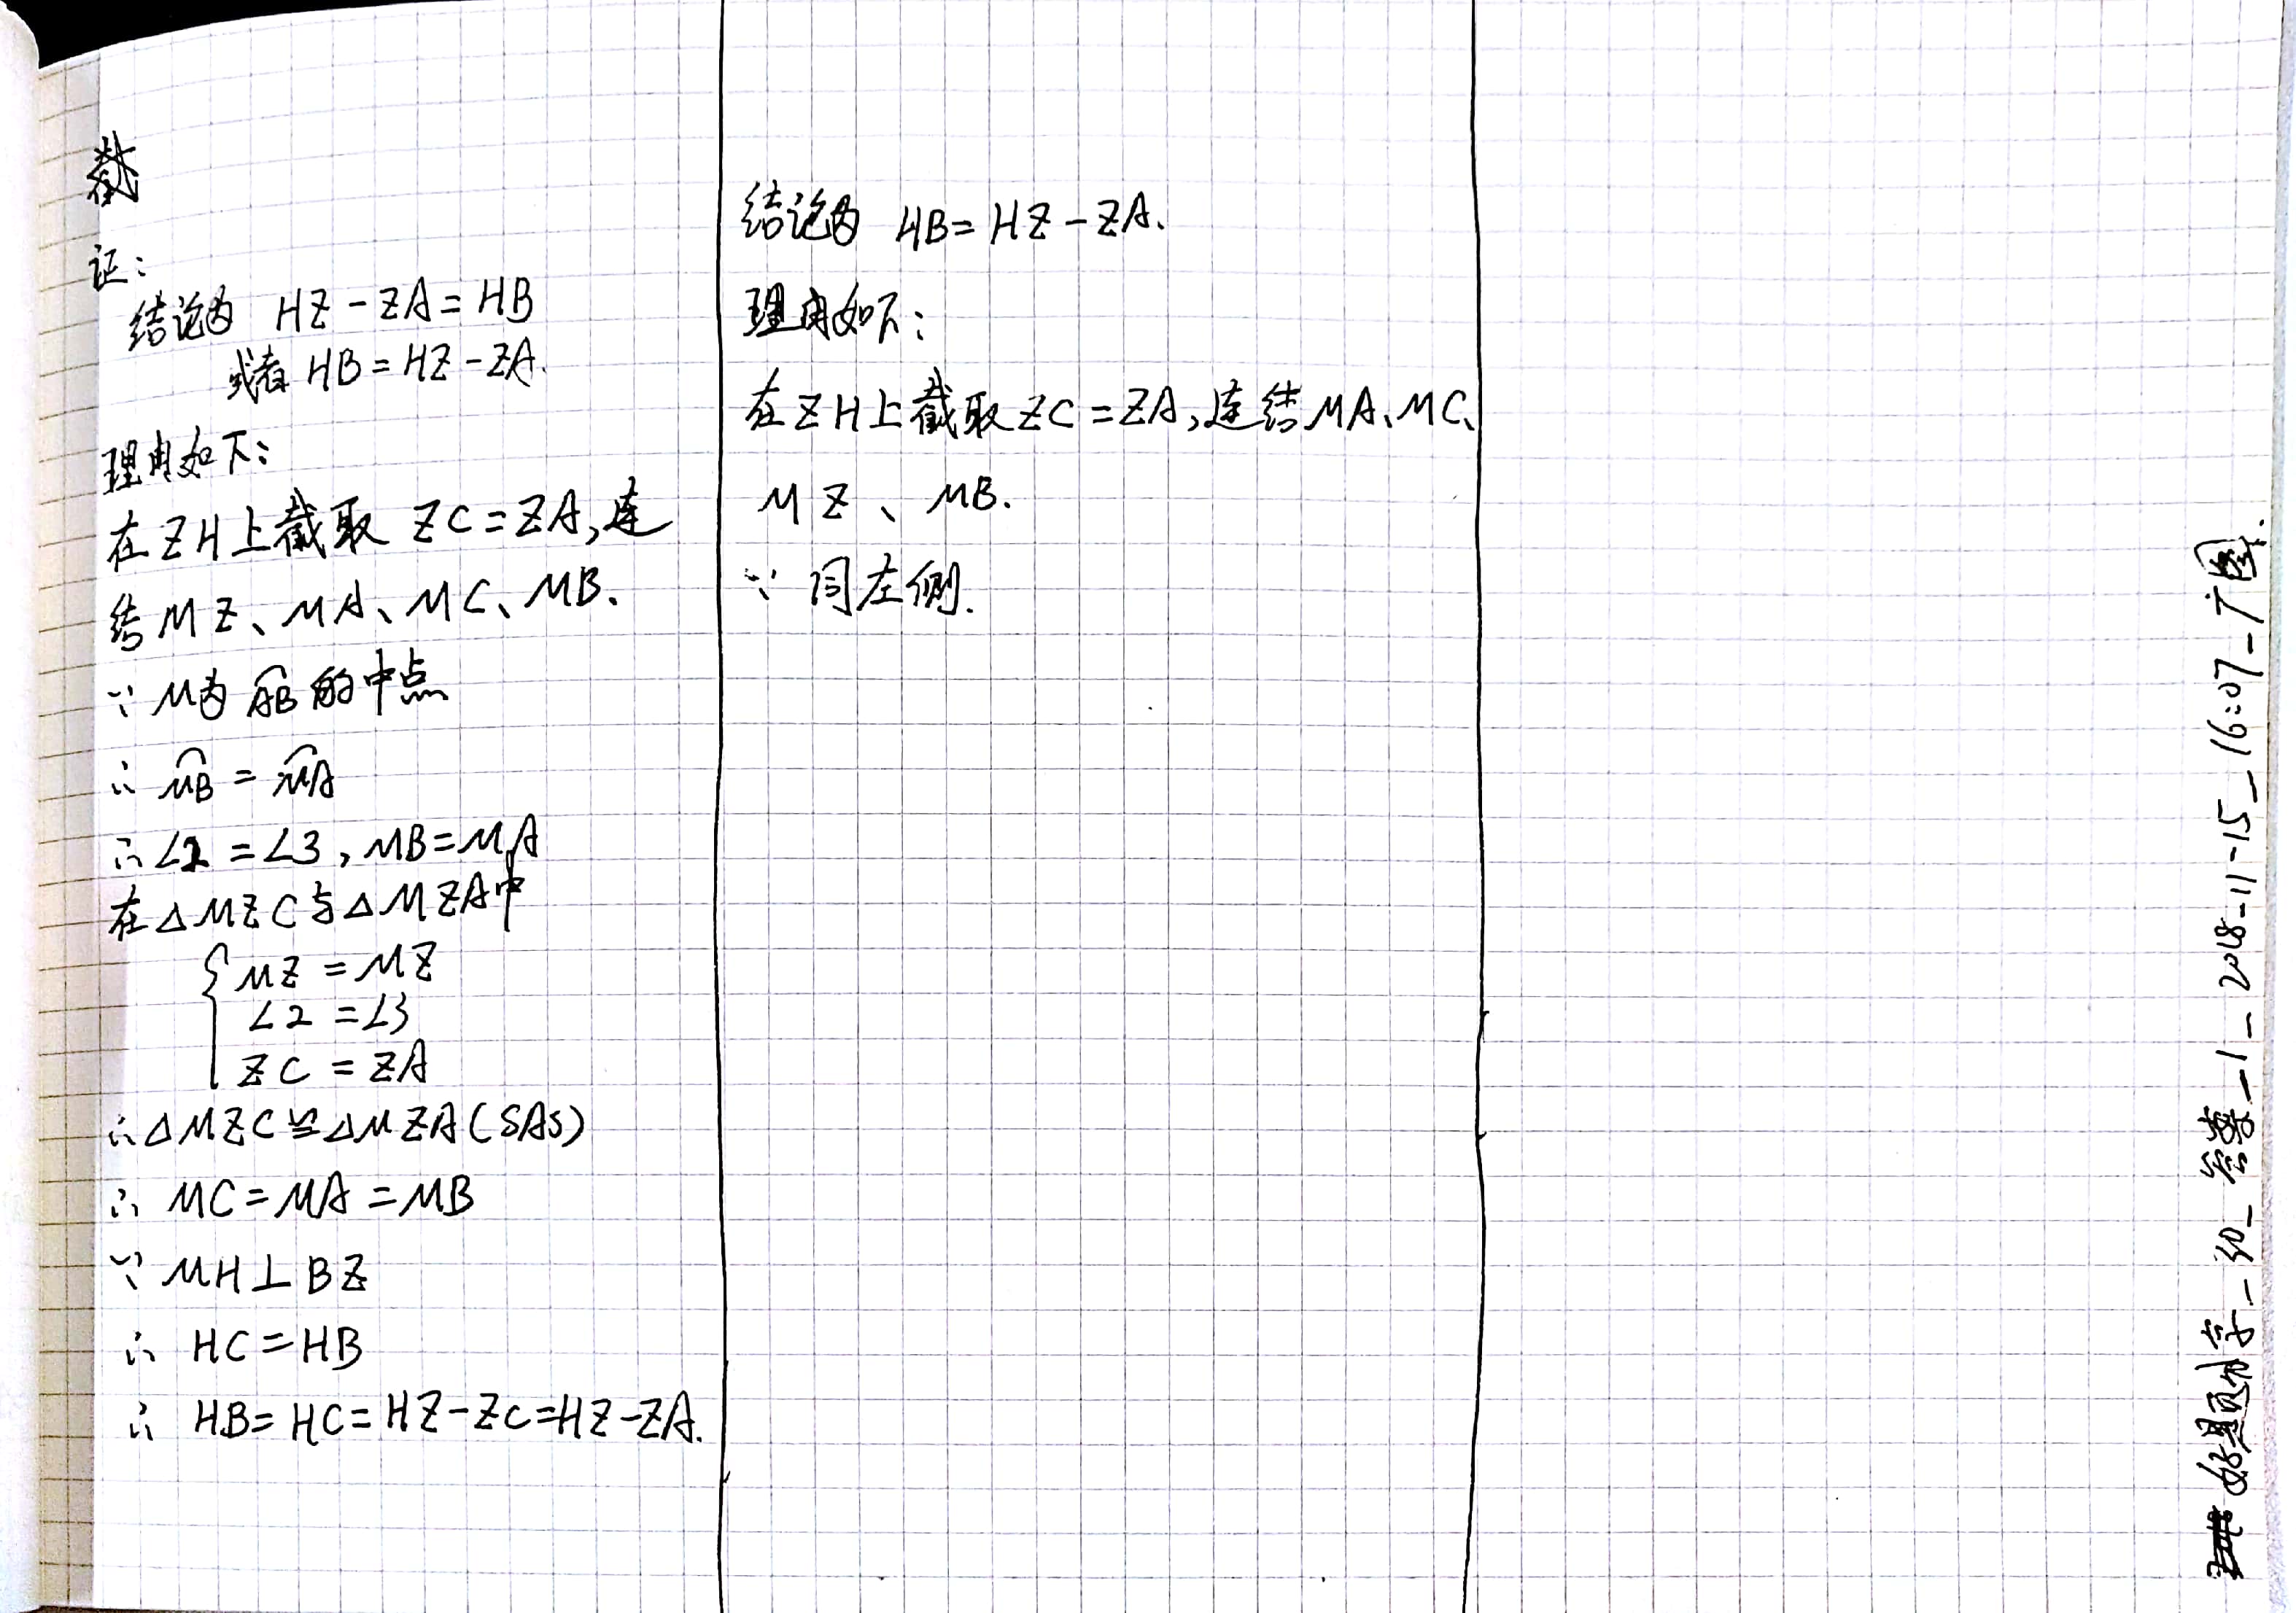 截
证:
结论为 HZ-ZA=HB
或者 HB=HZ-ZA.
理由如下:
在ZH上截取 ZC=ZA,连
结MZ、MA、MC、MB.
∵ M为 A͡B 的中点
∴ M͡B = M͡A
∴ ∠2=∠3, MB=MA
在△MZC与△MZA中
{ MZ=MZ
∠2=∠3
ZC=ZA
∴△MZC≌△MZA(SAS)
∴ MC=MA=MB
∵ MH⊥BZ
∴ HC=HB
∴ HB=HC=HZ-ZC=HZ-ZA.
结论为 HB=HZ-ZA.
理由如下:
在ZH上截取ZC=ZA,连结MA、MC、
MZ、MB.
∵ 同左侧.
好题 - 30_答案_1_2018-11-15_16:07_T图.